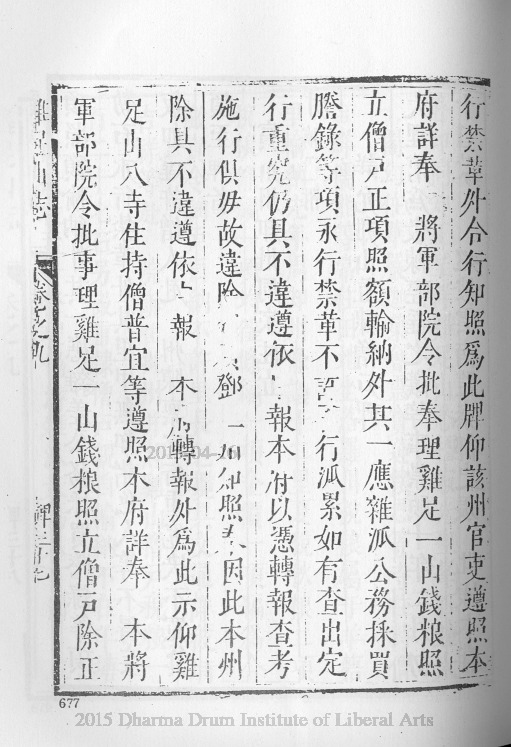 行禁革外合行知照爲此牌仰該州官吏遵照本
府詳奉 將軍部院令批奉理雞足一山錢粮照
立僧戸正項照額輸納外其一應雜派公務採買
謄錄等項永行禁革不 行派累如有查出定
行重究仍具不違遵依 報本府以憑轉報查考
施行俱毋故違 鄧 知照 因此本州
除具不違遵依 報 本 轉報外爲此示仰雞
足山八寺住持僧普宜等遵照本府詳奉 本將
軍部院令批事理雞足一山錢粮照立僧戸除正
雞足山志 卷之九
677
2015 Dharma Drum Institute of Liberal Arts